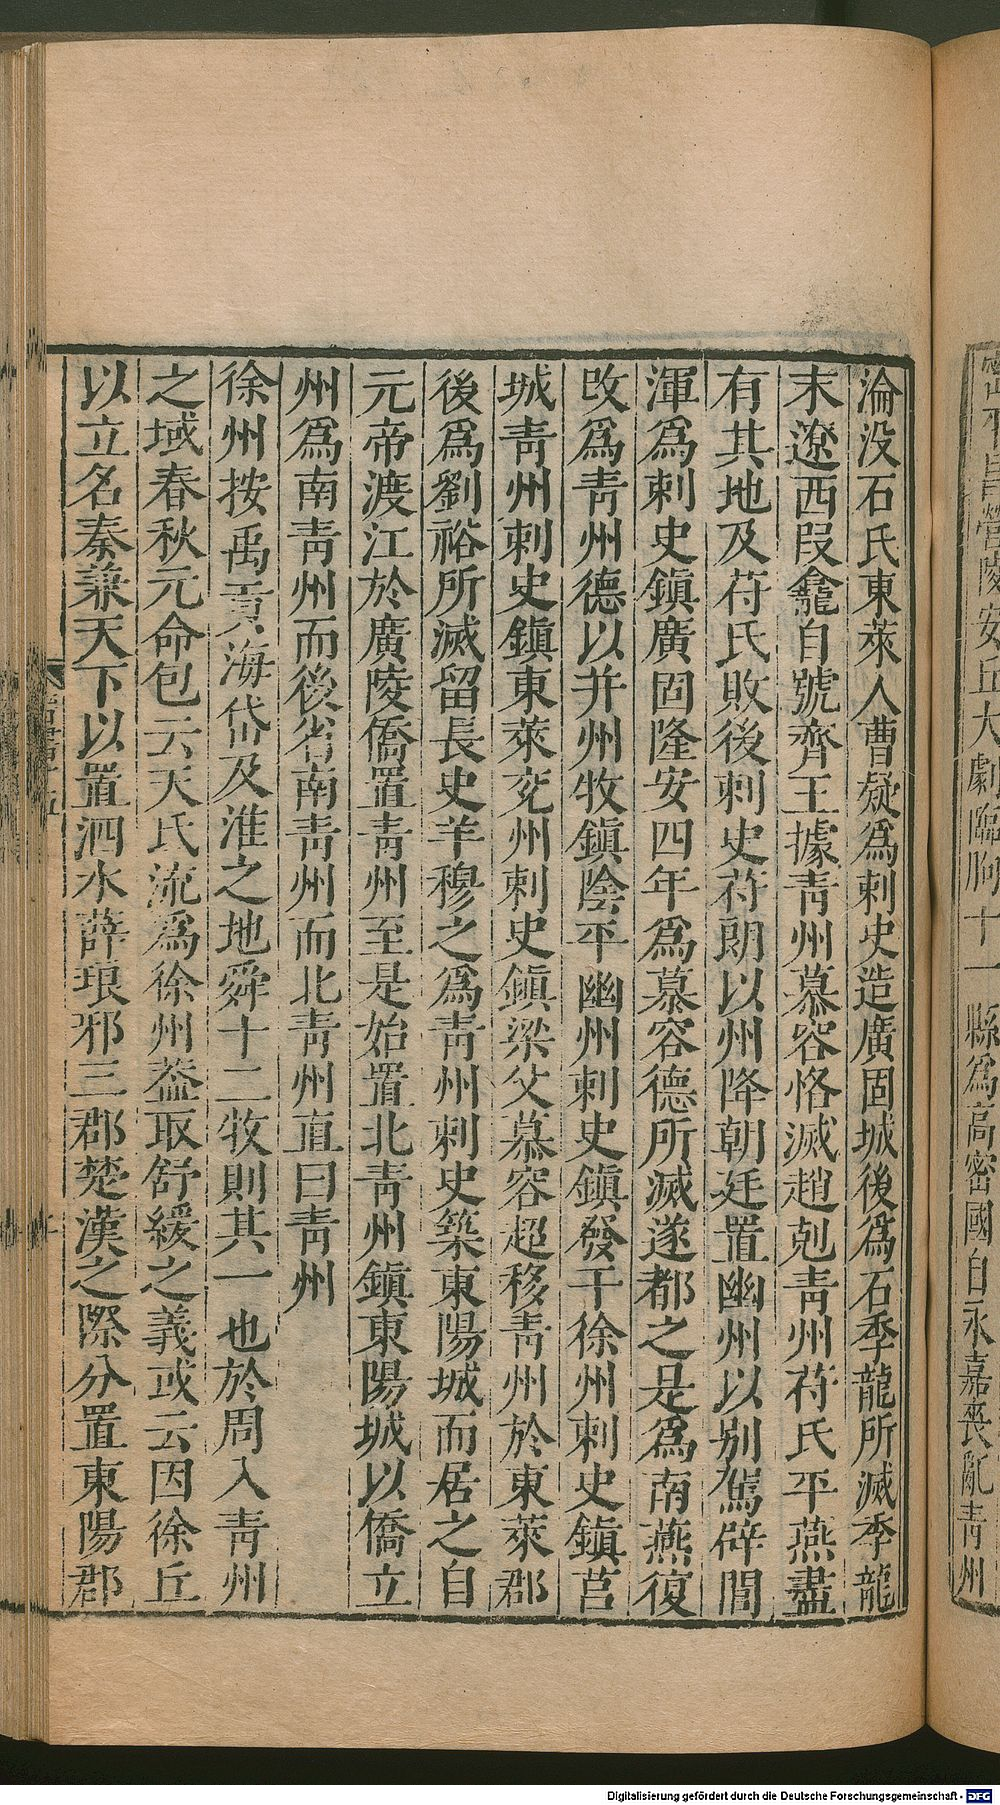 密平昌營陵安丘大劇臨朐十一縣爲高密國自永嘉喪亂青州
淪没石氏東萊人曹嶷爲刺史造廣固城後爲石季龍所滅季龍
末遼西段龕自號齊王據青州慕容恪滅趙剋青州苻氏平燕盡
有其地及苻氏敗後刺史苻朗以州降朝廷置幽州以别駕辟閭
渾爲刺史鎮廣固隆安四年爲慕容德所滅遂都之是爲南燕復
改爲青州德以并州牧鎮陰平幽州刺史鎮發干徐州刺史鎮莒
城青州刺史鎮東萊兖州刺史鎮梁父慕容超移青州於東萊郡
後爲劉裕所滅留長史羊穆之爲青州刺史築東陽城而居之自
元帝渡江於廣陵僑置青州至是始置北青州鎮東陽城以僑立
州爲南青州而後省南青州而北青州直曰青州
徐州按禹貢海岱及淮之地舜十二牧則其一也於周入青州
之域春秋元命包云天氏流爲徐州蓋取舒緩之義或云因徐丘
以立名秦兼天下以置泗水薛琅邪三郡楚漢之際分置東陽郡
Digitalisierung gefördert durch die Deutsche Forschungsgemeinschaft - DFG